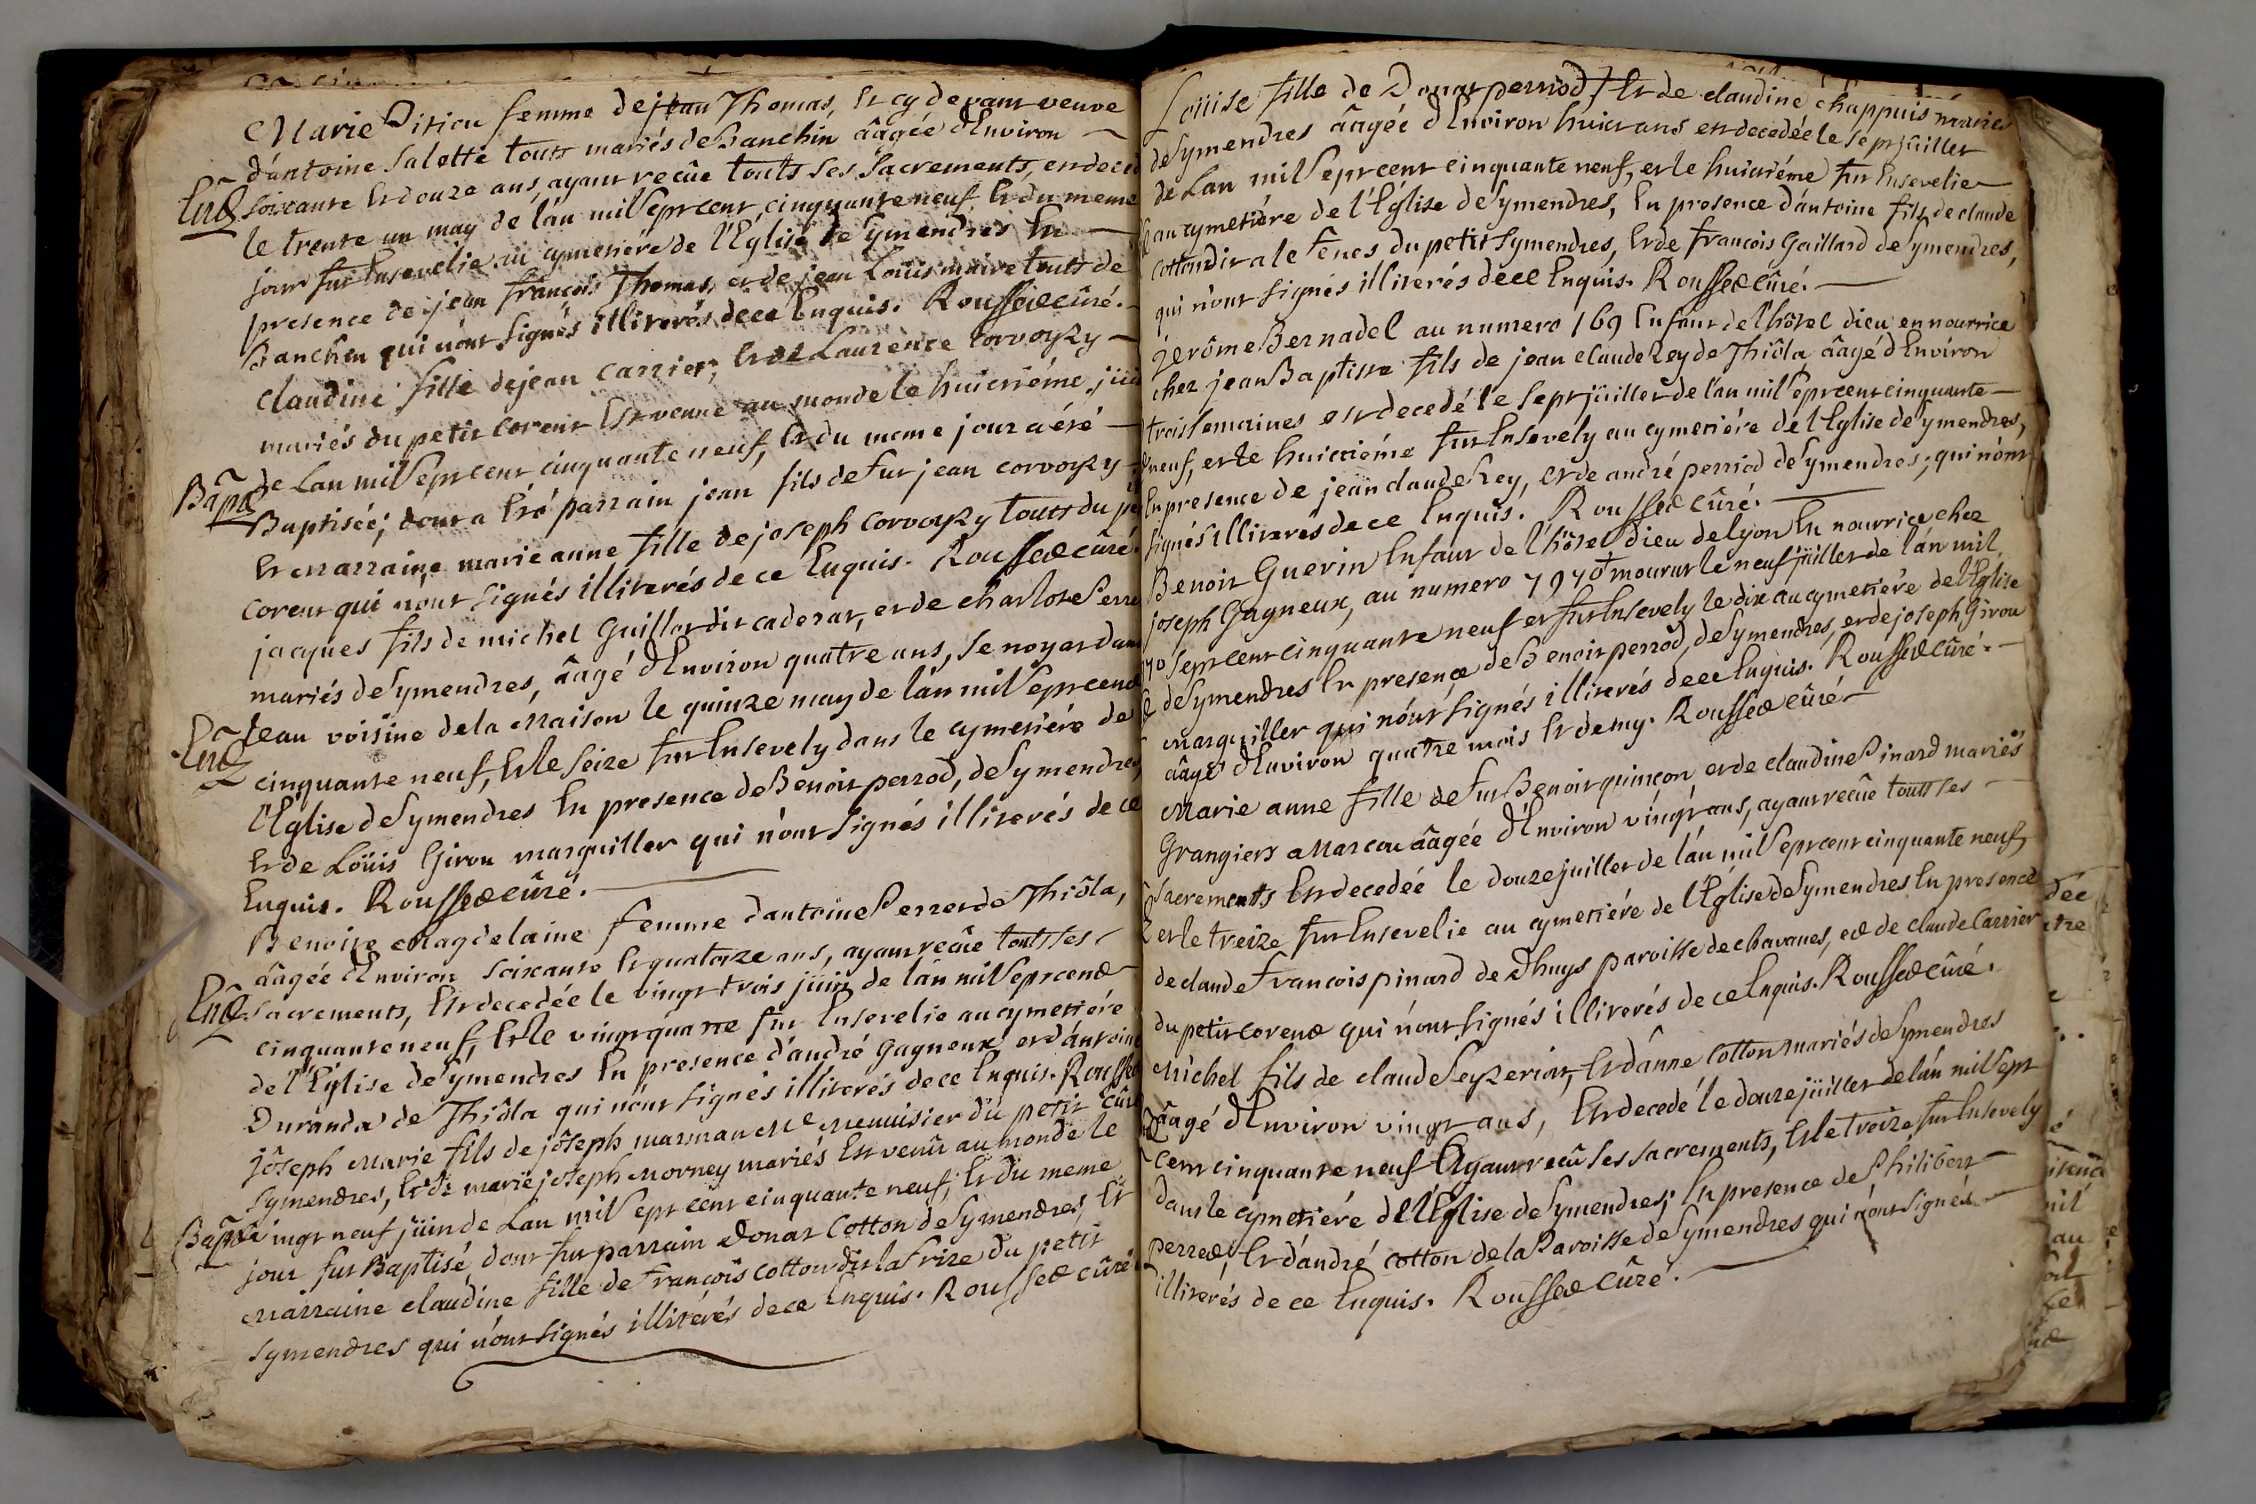 Marie Pitiou femme de jean Thomas, et cy devant veuve
d'antoine Salotte touts mariés de Banchin âagée d'Environ
Ent soixante et douze ans, ayant recûe touts ses sacrements, est deced
le trente un may de l'an mil sept cent cinquante neuf, et du meme
jour fut Ensevelie au cymetiére de l'Eglise de Symendres En
presence de jean françois Thomas, et de jean Loüis maire touts de
Banchin qui n'ont signés illiterés de ce Enquis. Rousset cûré.
Claudine fille de jean Carrier, et de Laurence Corvoyzy
mariés du petit Corent Est venue au monde le huictiéme jüin
Bapt de Lan mil sept cent cinquante neuf, et du meme jour a été
Baptisée; dont a Eté parrain jean fils de fut jean corvoyzy
Et marraine marie anne fille de joseph corvoyzy touts du pe
Corent qui n'ont signés illiterés de ce Enquis. Rousset cûré.
jacques fils de michel Guillot dit caderat, et de charlote Perre
mariés de Symendres, âagé d'Environ quatre ans, se noyat dans
Ent l'eau voisine de la maison le quinze may de l'an mil sept cent
cinquante neuf, et le seize fut Ensevely dans le cymetiére de
l'Eglise de Symendres En presence de Benoit perrod, de Symendres
Et de Loüis Girou marguiller qui n'ont signés illiterés de ce
Enquis. Rousset cûré.
Benoite Magdelaine femme d'antoine Perret de Thiôla,
âagée d'Environ soixante et quatorze ans, ayant recûe touts ses
Ent sacrements, Est decedée le vingt trois jüin de l'an mil sept cent
cinquante neuf, et le vingt quatre fut Ensevelie au cymetiére
de l'Eglise de Symendres En presence d'andré Gagneux et d'antoine
Durand de Thiôla qui n'ont signés illiterés de ce Enquis. Rousset
cûré
jôseph Marie fils de jôseph marmant Me menuisier du petit
Symendres, Et de marie joseph Morney mariés Est venû au monde le
Bapt vingt neuf jüin de Lan mil sept cent cinquante neuf, Et du meme
jour fut Baptisé, dont fut parrain Donat Cotton de Symendres, Et
Marraine claudine fille de François cotton dit la Frize du petit
Symendres qui n'ont signés illiterés de ce Enquis. Rousset cûré
Loüise fille de Donat perriod, Et de claudine chappuis mariés
de Symendres âagée d'Environ huict ans est decedée le sept jüillet
de Lan mil sept cent cinquante neuf, et le huictiéme fut Ensevelie
au cymetiére de l'Eglise de Symendres, En presence d'antoine fils de claude
Cotton dit ale Fenes du petit Symendres, Et de François Gaillard de Symendres,
qui n'ont signés illiterés de ce Enquis. Rousset cûré.
jerôme Bernadel au numero 169 Enfant de l'hôtel dieu en nourrice
chez jean Baptiste fils de jean claude Rey de Thiôla âagé d'Environ
trois semaines est decedé le sept jüillet de l'an mil sept cent cinquante
neuf, et le huictiéme fut Ensevely au cymetiére de l'Eglise de Symendres,
En presence de jean claude Rey, Et de andré perriod de Symendres, qui n'ont
signés illiterés de ce Enquis. Rousset cûré.
Benoit Guerin Enfant de l'hôtel dieu de Lyon En nourrice chez
joseph Gagneux, au numero 7970 mourut le neuf jüillet de l'an mil
sept cent cinquante neuf et fut Ensevely le dix au cymetiére de l'Eglise
de Symendres En presence de Benoit perrod, de Symendres, et de joseph Girou
Marguiller qui n'ont signés illiterés de ce Enquis. Rousset cûré.
âagé d'Environ quatre mois Et demy. Rousset cûré
Marie anne fille de fut Benoit quinçon et de claudine Pinard mariés
Grangiers a Marcou âagée d'Environ vingt ans, ayant recûe touts ses
Sacrements Est decedée le douze juillet de l'an mil sept cent cinquante neuf
et le treize fut Ensevelie au cymetiére de l'Eglise de Symendres En presence
de claude François pinard de Dhuys paroisse de chavanes, et de claude Carrier
du petit corent qui n'ont signés illiterés de ce Enquis. Rousset cûré.
Michel fils de claude Seyzeriat, Et d'anne Cotton mariés de Symendres
âagé d'Environ vingt ans, Est decedé le douze jüillet de l'an mil sept
cent cinquante neuf Ayant recû ses sacrements, Et le treize fut Ensevely
dans le cymetiére de l'Eglise de Symendres; En presence de Philibert
perret, Et d'andré cotton de la Paroisse de Symendres qui n'ont signés
illiterés de ce Enquis. Rousset Cûré.